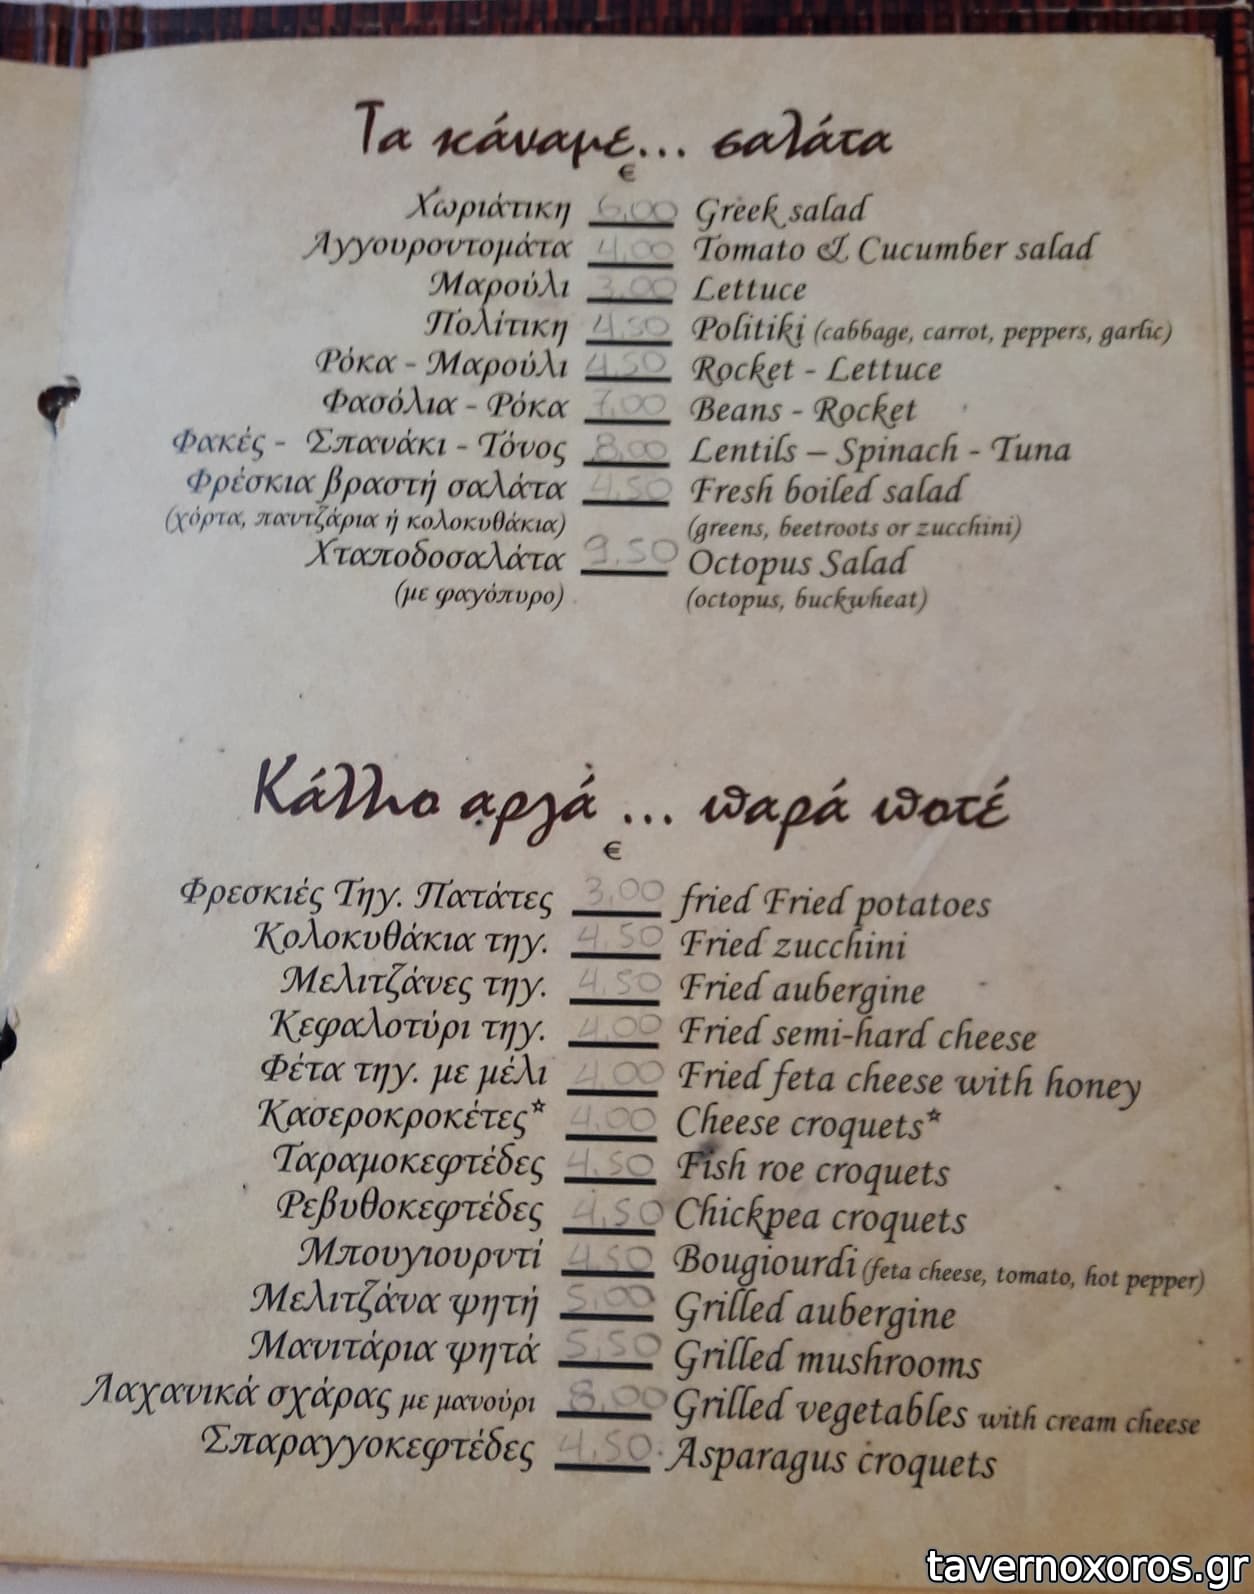 Τα κάναμε... σαλάτα
€
Χωριάτικη 6,00 Greek salad
Αγγουροντομάτα 4,00 Tomato & Cucumber salad
Μαρούλι 3,00 Lettuce
Πολίτικη 4,50 Politiki (cabbage, carrot, peppers, garlic)
Ρόκα - Μαρούλι 4,50 Rocket - Lettuce
Φασόλια - Ρόκα 7,00 Beans - Rocket
Φακές - Σπανάκι - Τόνος 8,00 Lentils – Spinach - Tuna
Φρέσκια βραστή σαλάτα 4,50 Fresh boiled salad
(χόρτα, παντζάρια ή κολοκυθάκια) (greens, beetroots or zucchini)
Χταποδοσαλάτα 9,50 Octopus Salad
(με φαγόπυρο) (octopus, buckwheat)
Κάλλιο αργά ... παρά ποτέ
€
Φρεσκιές Τηγ. Πατάτες 3,00 fried Fried potatoes
Κολοκυθάκια τηγ. 4,50 Fried zucchini
Μελιτζάνες τηγ. 4,50 Fried aubergine
Κεφαλοτύρι τηγ. 4,00 Fried semi-hard cheese
Φέτα τηγ. με μέλι 4,00 Fried feta cheese with honey
Κασεροκροκέτες* 4,00 Cheese croquets*
Ταραμοκεφτέδες 4,50 Fish roe croquets
Ρεβυθοκεφτέδες 4,50 Chickpea croquets
Μπουγιουρντί 4,50 Bougiourdi (feta cheese, tomato, hot pepper)
Μελιτζάνα ψητή 5,00 Grilled aubergine
Μανιτάρια ψητά 5,50 Grilled mushrooms
Λαχανικά σχάρας με μανούρι 8,00 Grilled vegetables with cream cheese
Σπαραγγοκεφτέδες 4,50 Asparagus croquets
tavernoxoros.gr